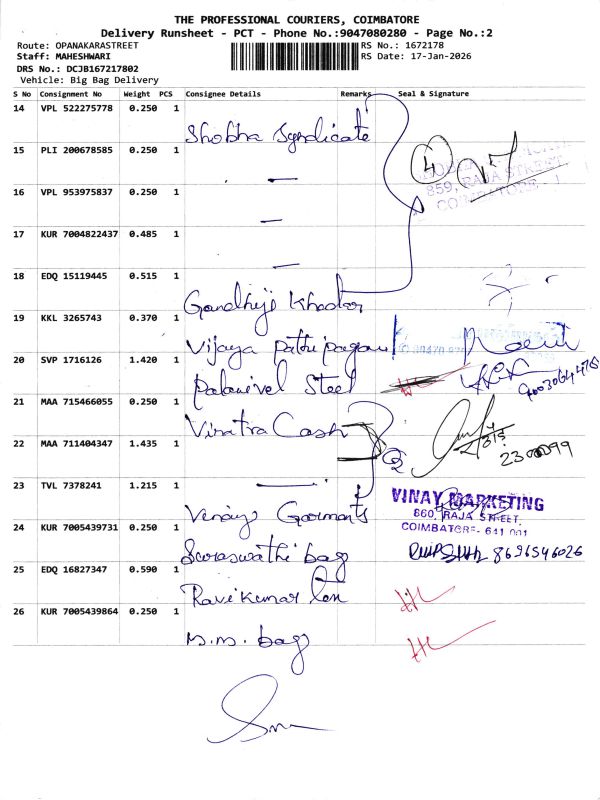 THE PROFESSIONAL COURIERS, COIMBATORE
Delivery Runsheet - PCT - Phone No.:9047080280 - Page No.:2
Route: OPANAKARASTREET RS No.: 1672178
Staff: MAHESHWARI RS Date: 17-Jan-2026
DRS No.: DCJB167217802
Vehicle: Big Bag Delivery
S No Consignment No Weight PCS Consignee Details Remarks Seal & Signature
14 VPL 522275778 0.250 1
Shobha Syndicate
15 PLI 200678585 0.250 1
—
4
859, RAJA STREET
COIMBATORE - 1
16 VPL 953975837 0.250 1
—
17 KUR 7004822437 0.485 1
—
18 EDQ 15119445 0.515 1
Gandhiji Khadar
19 KKL 3265743 0.370 1
Vijaya pathipagam
20 SVP 1716126 1.420 1
Palanivel Steel
21 MAA 715466055 0.250 1
Vinatra Cash
22 MAA 711404347 1.435 1
—
2
23 TVL 7378241 1.215 1
Vinay Garments
VINAY MARKETING
860, RAJA STREET.
COIMBATORE - 641 001
24 KUR 7005439731 0.250 1
Saraswathi bag
8696546026
25 EDQ 16827347 0.590 1
Ravikumar
26 KUR 7005439864 0.250 1
M.M. bag